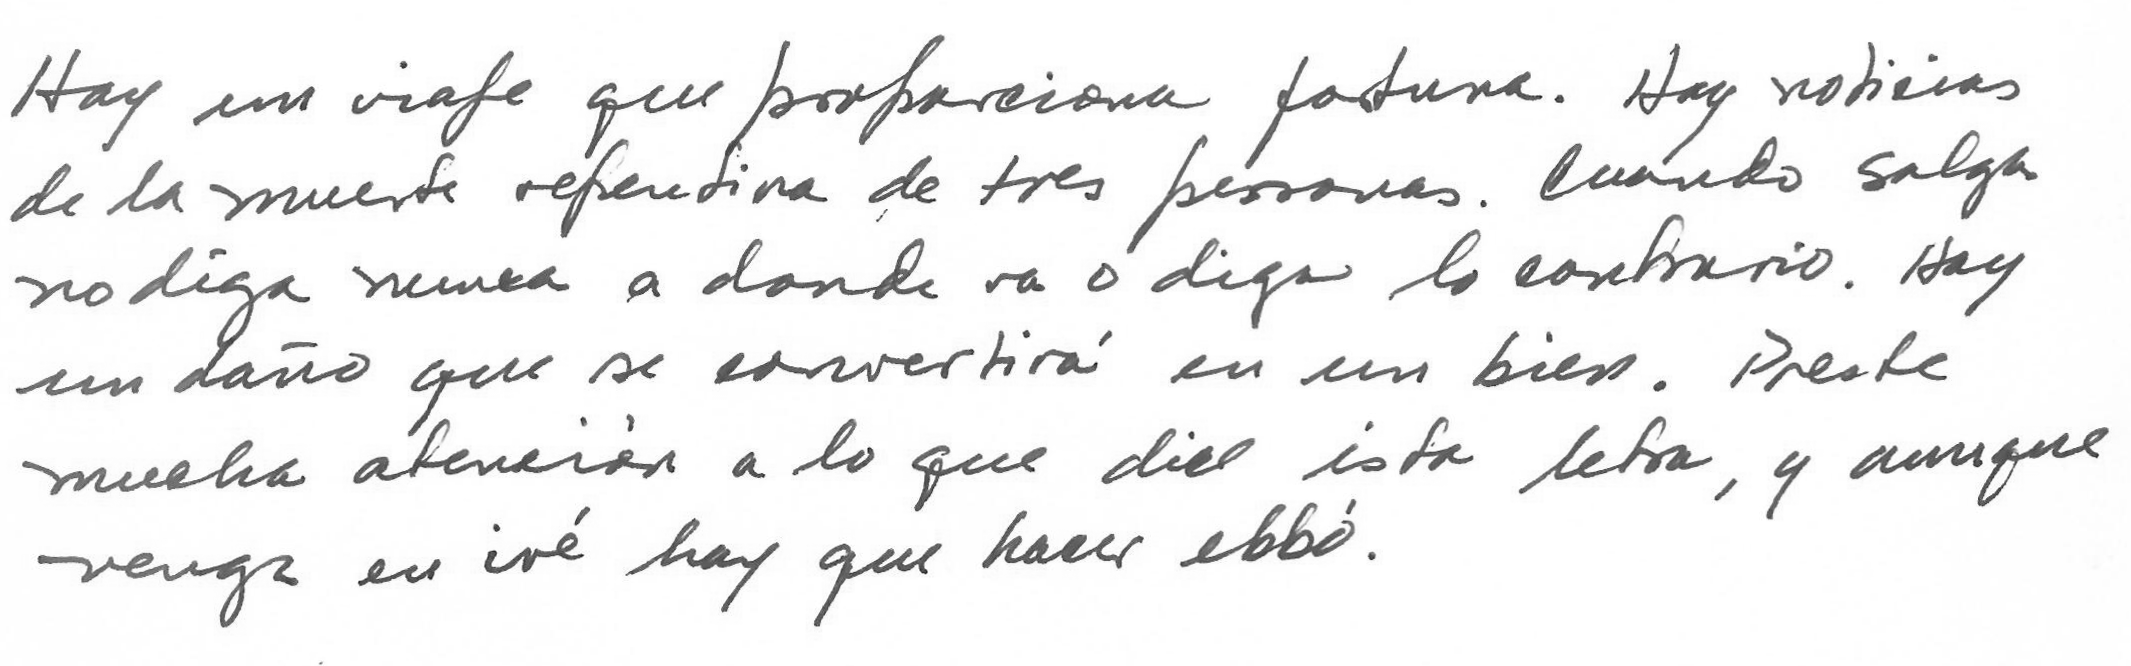 Hay un viaje que proporciona fortuna. Hay noticias
de la muerte repentina de tres personas. Cuando salga
no diga nunca a donde va o diga lo contrario. Hay
un daño que se convertirá en un bien. Preste
mucha atención a lo que dice ésta letra, y aunque
venga en iré hay que hacer ebbó.